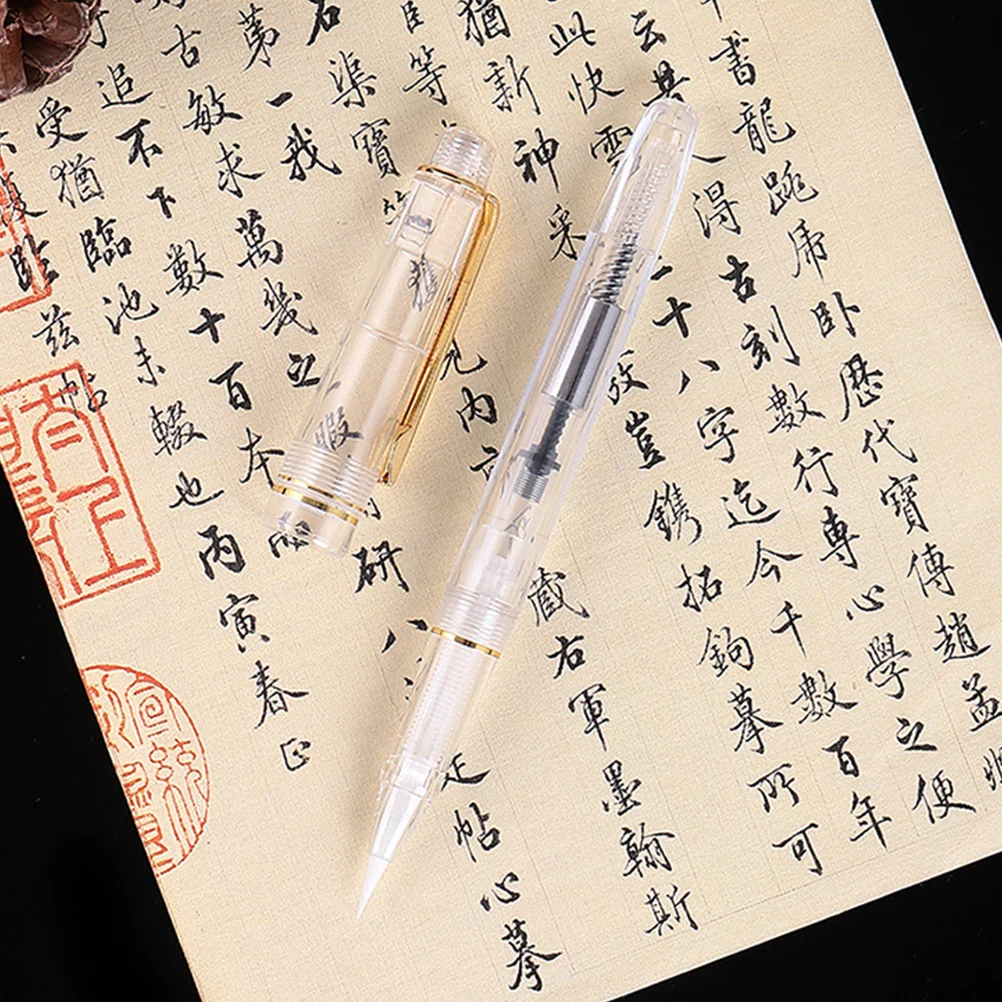 書龍跳虎卧歷代寶傳趙孟
云其得古刻數行專心學之便
此快雪二十八字迄今千數百年
猶新神采攷豈鐫拓鉤摹所可
等藏右軍墨翰斯
石渠寶元内足帖心摹
第一我研八
古敏求萬幾之暇
追不下數十百本而
受猶臨池未輟也丙寅春正
臨茲帖